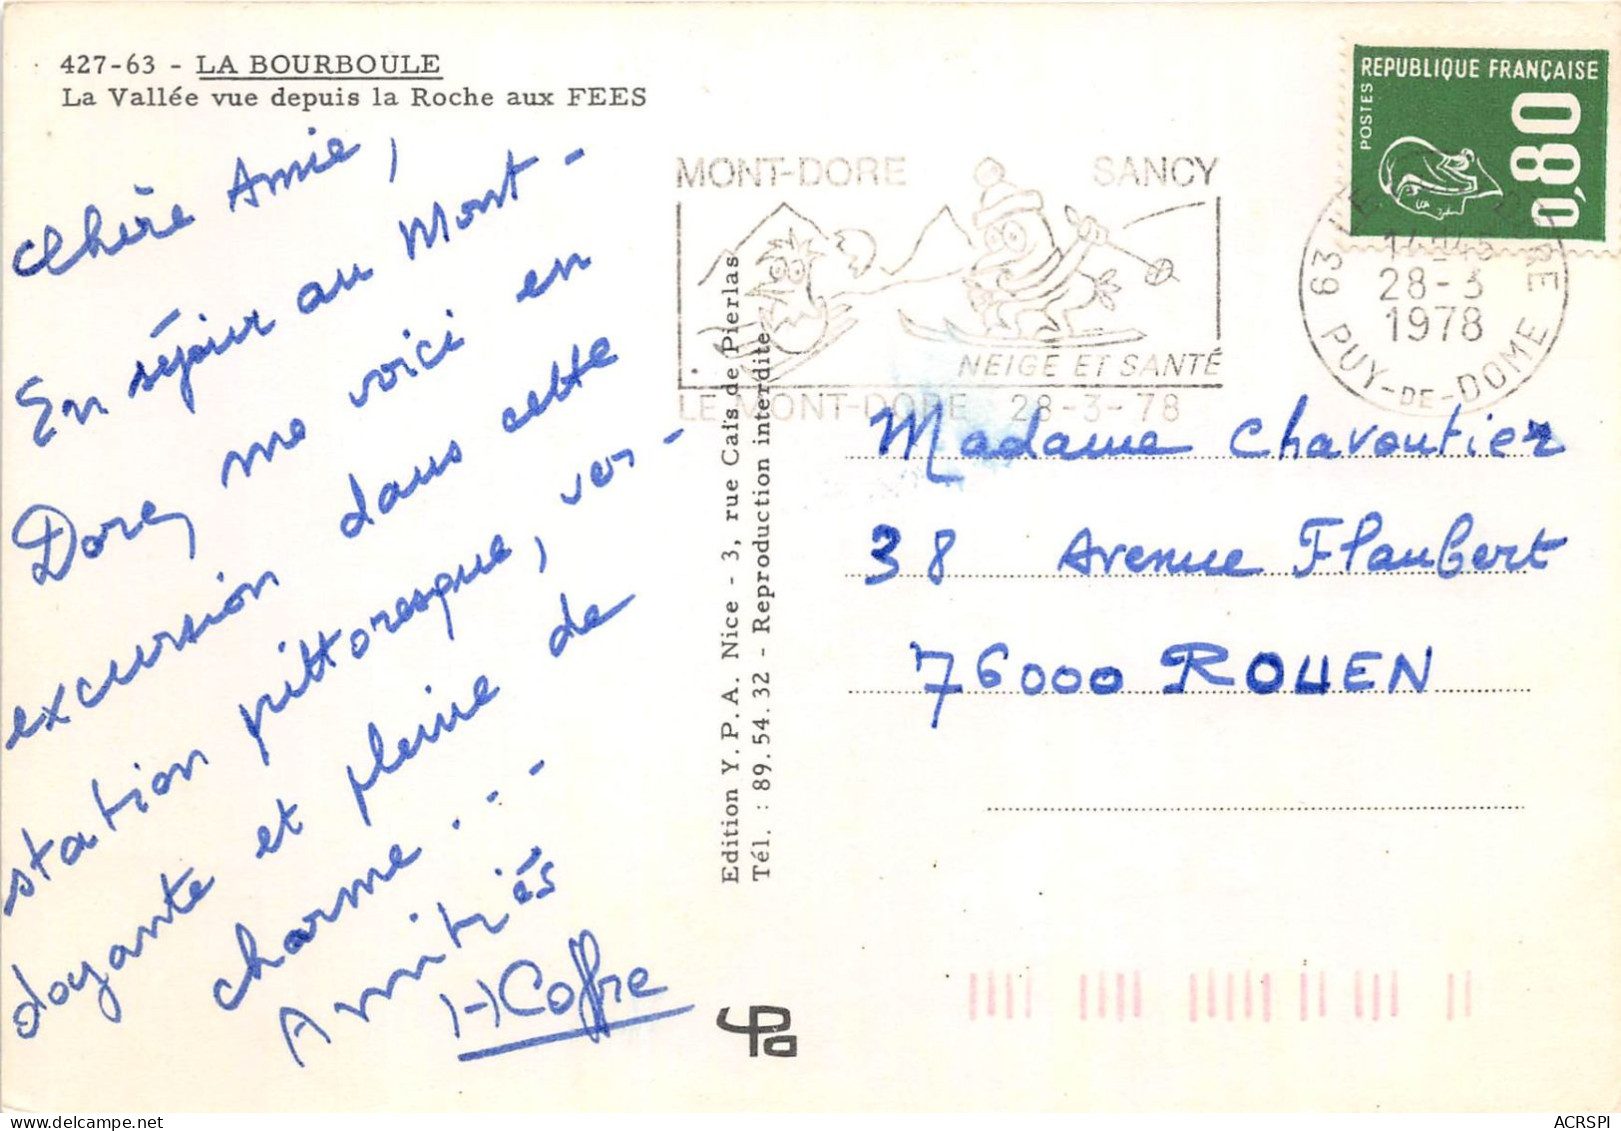 427-63 - LA BOURBOULE
La Vallée vue depuis la Roche aux FEES
Chère Amie,
En séjour au Mont-
Dore, me voici en
excursion dans cette
station pittoresque, ver-
doyante et pleine de
charme...
Amitiés
HCoffre
Edition Y.P.A. Nice - 3, rue Caïs de Pierlas
Tél. : 89.54.32 - Reproduction interdite
MONT-DORE SANCY
NEIGE ET SANTÉ
LE MONT-DORE 28-3-78
REPUBLIQUE FRANÇAISE
POSTES
0,80
63 LE MONT-DORE
14-45
28-3
1978
PUY-DE-DOME
Madame Chavoutier
38 Avenue Flaubert
76000 ROUEN
ACRSPI